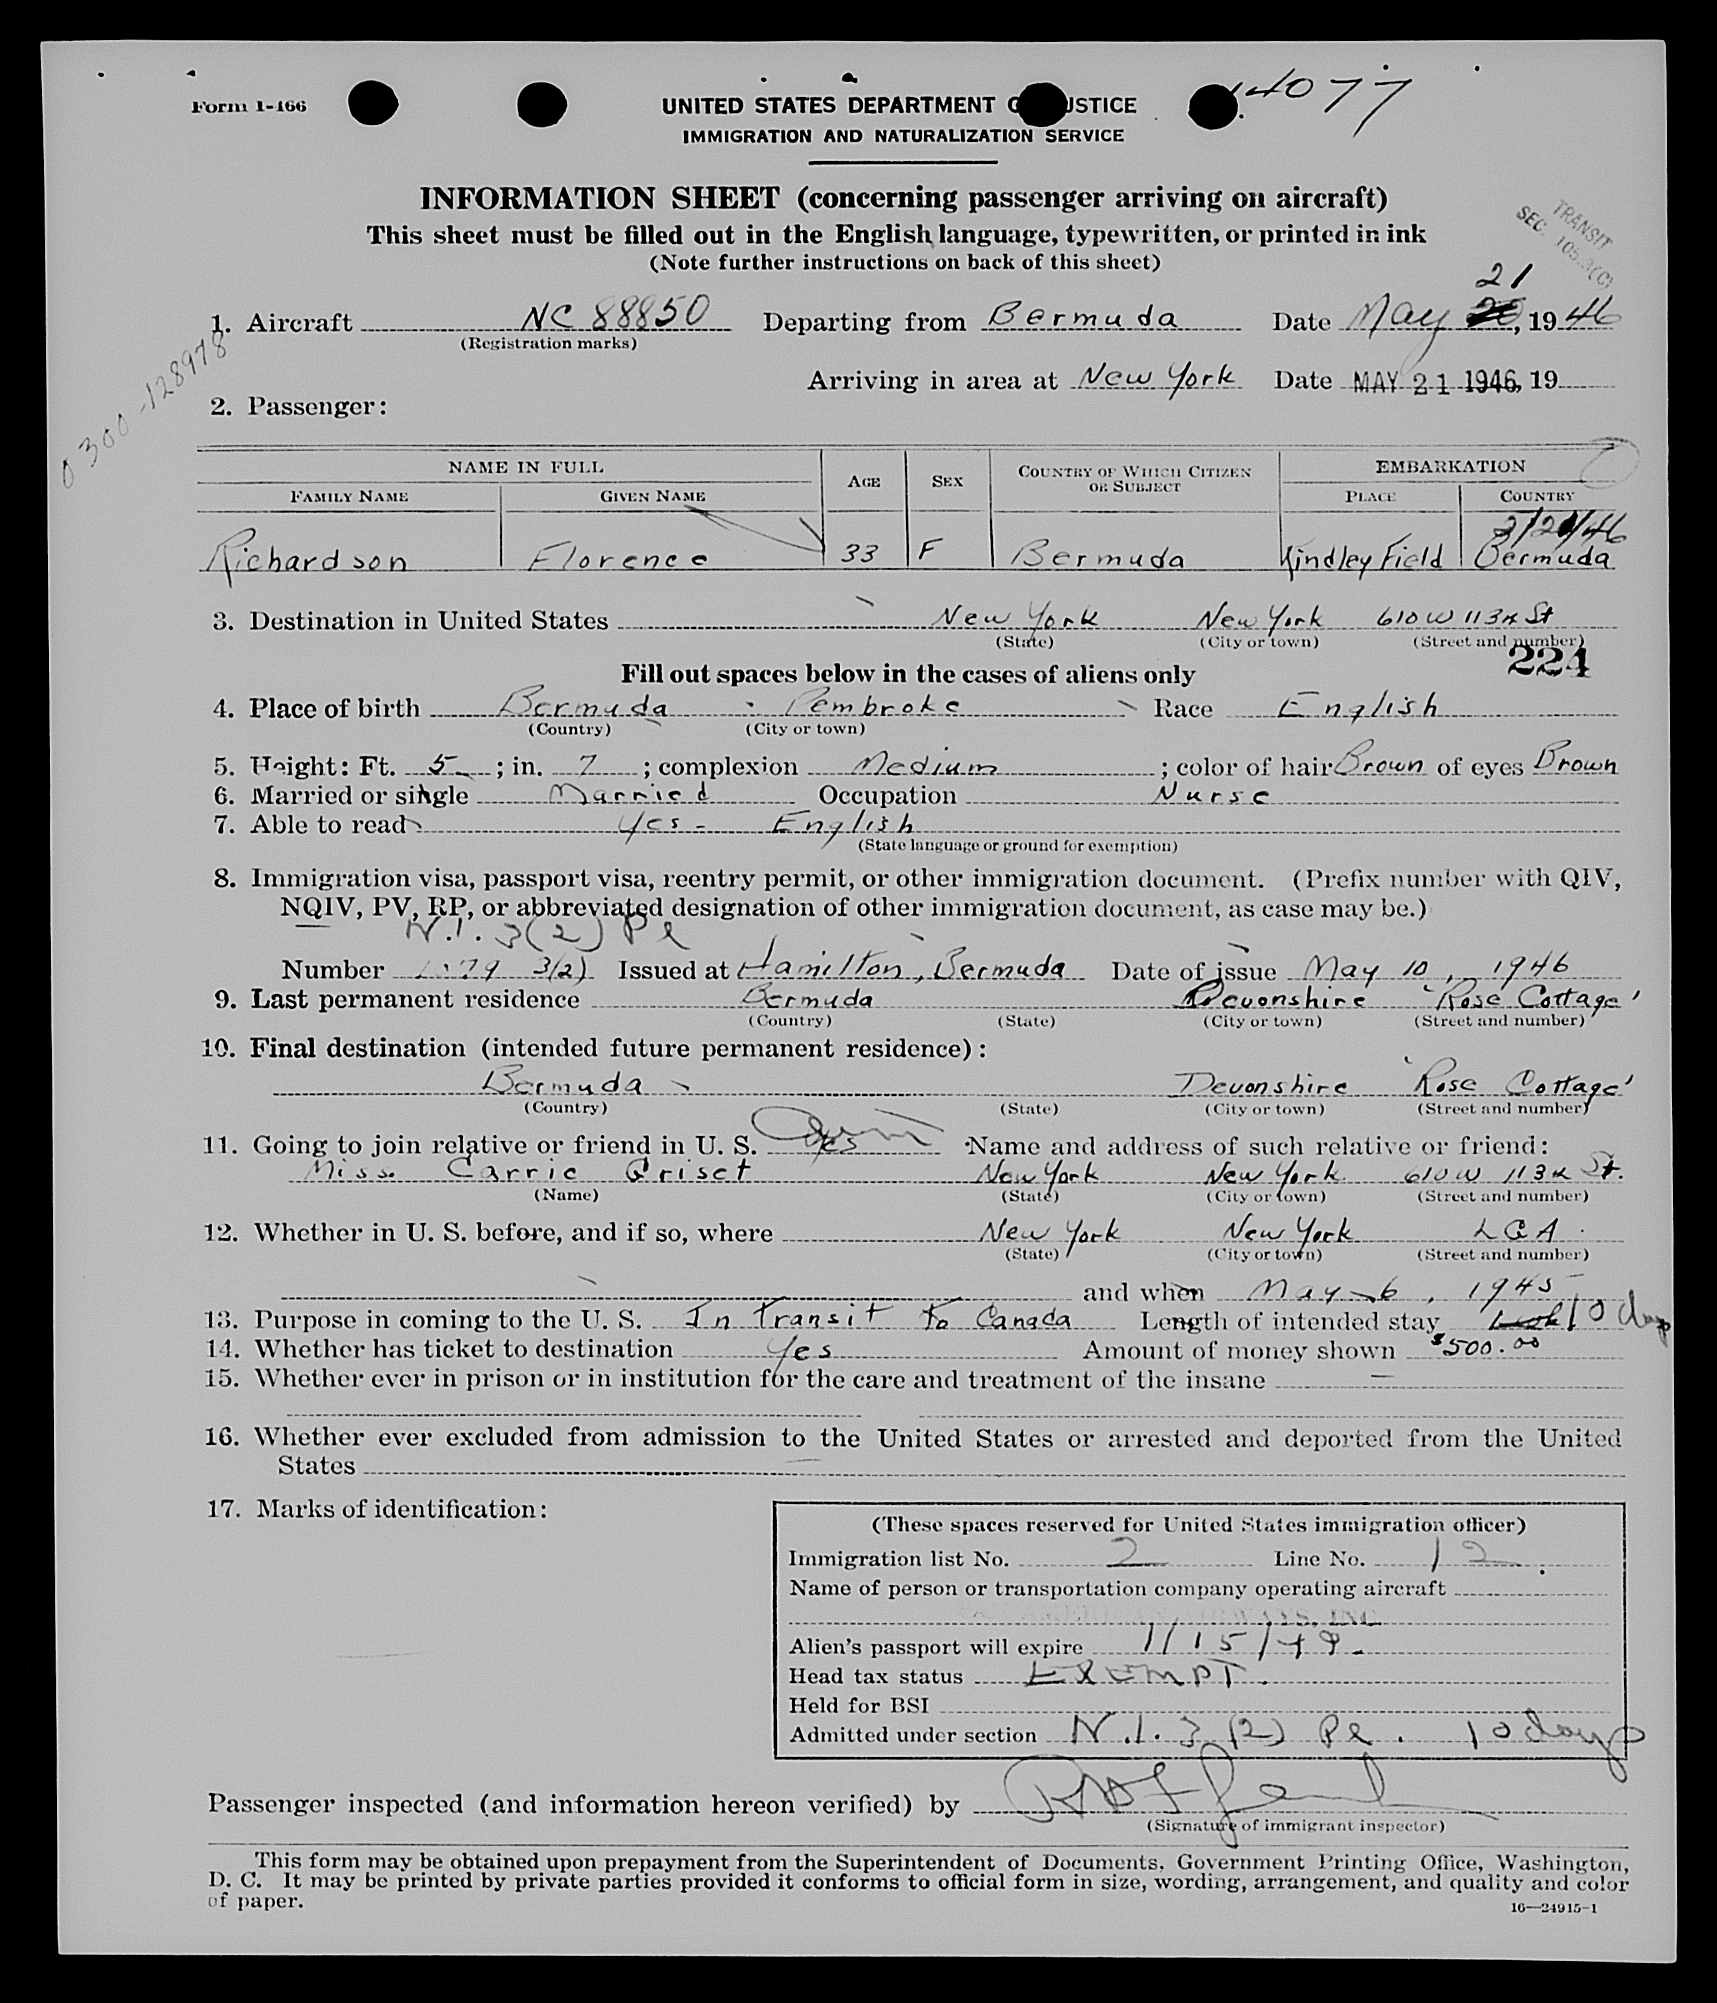 Form I-466
4077
UNITED STATES DEPARTMENT JUSTICE
IMMIGRATION AND NATURALIZATION SERVICE
INFORMATION SHEET (concerning passenger arriving on aircraft)
This sheet must be filled out in the English language, typewritten, or printed in ink
(Note further instructions on back of this sheet)
TRANSIT
SEC. 105.3(C)
21
1. Aircraft NC 88850 Departing from Bermuda Date May , 1946
(Registration marks)
0300-128978
Arriving in area at New York Date MAY 21 1946, 19
2. Passenger:
NAME IN FULL AGE SEX COUNTRY OF WHICH CITIZEN OR SUBJECT EMBARKATION
FAMILY NAME GIVEN NAME PLACE COUNTRY
Richardson Florence 33 F Bermuda Kindley Field Bermuda
3. Destination in United States New York New York 610 W 113th St
(State) (City or town) (Street and number)
224
Fill out spaces below in the cases of aliens only
4. Place of birth Bermuda Pembroke Race English
(Country) (City or town)
5. Height: Ft. 5 ; in. 7 ; complexion Medium ; color of hair Brown of eyes Brown
6. Married or single Married Occupation Nurse
7. Able to read Yes - English
(State language or ground for exemption)
8. Immigration visa, passport visa, reentry permit, or other immigration document. (Prefix number with QIV,
NQIV, PV, RP, or abbreviated designation of other immigration document, as case may be.)
N.I. 3(2) Pl
Number 3(2) Issued at Hamilton, Bermuda Date of issue May 10, 1946
9. Last permanent residence Bermuda Devonshire 'Rose Cottage'
(Country) (State) (City or town) (Street and number)
10. Final destination (intended future permanent residence):
Bermuda Devonshire 'Rose Cottage'
(Country) (State) (City or town) (Street and number)
11. Going to join relative or friend in U. S. Yes Name and address of such relative or friend:
Miss. Carrie Griset New York New York 610 W 113th St.
(Name) (State) (City or town) (Street and number)
12. Whether in U. S. before, and if so, where New York New York LGA
(State) (City or town) (Street and number)
and when May 6, 1945
13. Purpose in coming to the U. S. In Transit To Canada Length of intended stay 10 days
14. Whether has ticket to destination Yes Amount of money shown $500.00
15. Whether ever in prison or in institution for the care and treatment of the insane —
16. Whether ever excluded from admission to the United States or arrested and deported from the United
States —
17. Marks of identification:
(These spaces reserved for United States immigration officer)
Immigration list No. 2 Line No. 12
Name of person or transportation company operating aircraft
Alien's passport will expire 1/15/49.
Head tax status EXEMPT.
Held for BSI
Admitted under section N.I. 3(2) Pl. 10 days
Passenger inspected (and information hereon verified) by
(Signature of immigrant inspector)
This form may be obtained upon prepayment from the Superintendent of Documents, Government Printing Office, Washington,
D. C. It may be printed by private parties provided it conforms to official form in size, wording, arrangement, and quality and color
of paper.
16—24915-1